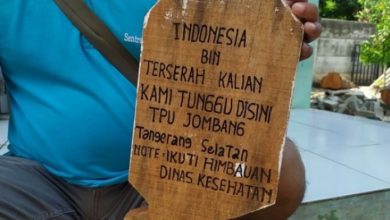 Sentr
INDONESIA
BIN
TERSERAH KALIAN
KAMI TUNGGU DISINI
TPU JOMBANG
Tangerang Selatan
NOTE : IKUTI HIMBAUAN
DINAS KESEHATAN